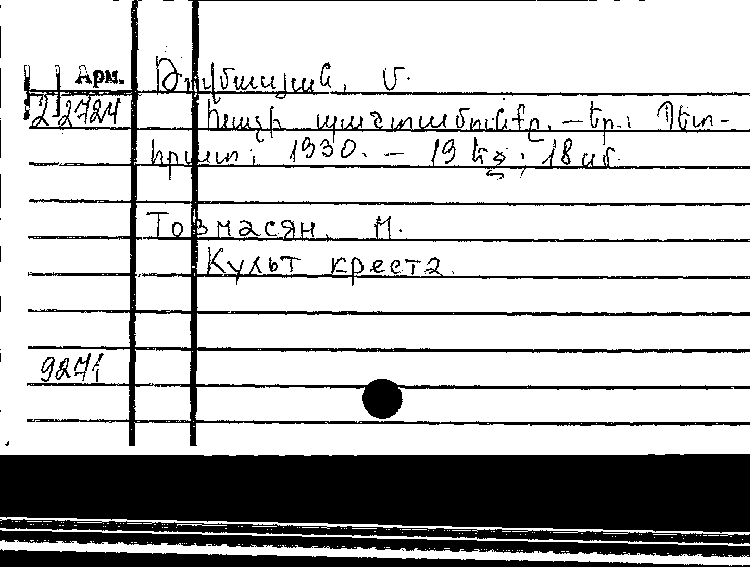 Арм. Թովմասյան, Մ.
2-2724 Խաչի պաշտամունքը. — Եր.: Պետ-
հրատ, 1930. — 19 եջ; 18 սմ.
Товмасян, М.
Культ креста.
9271